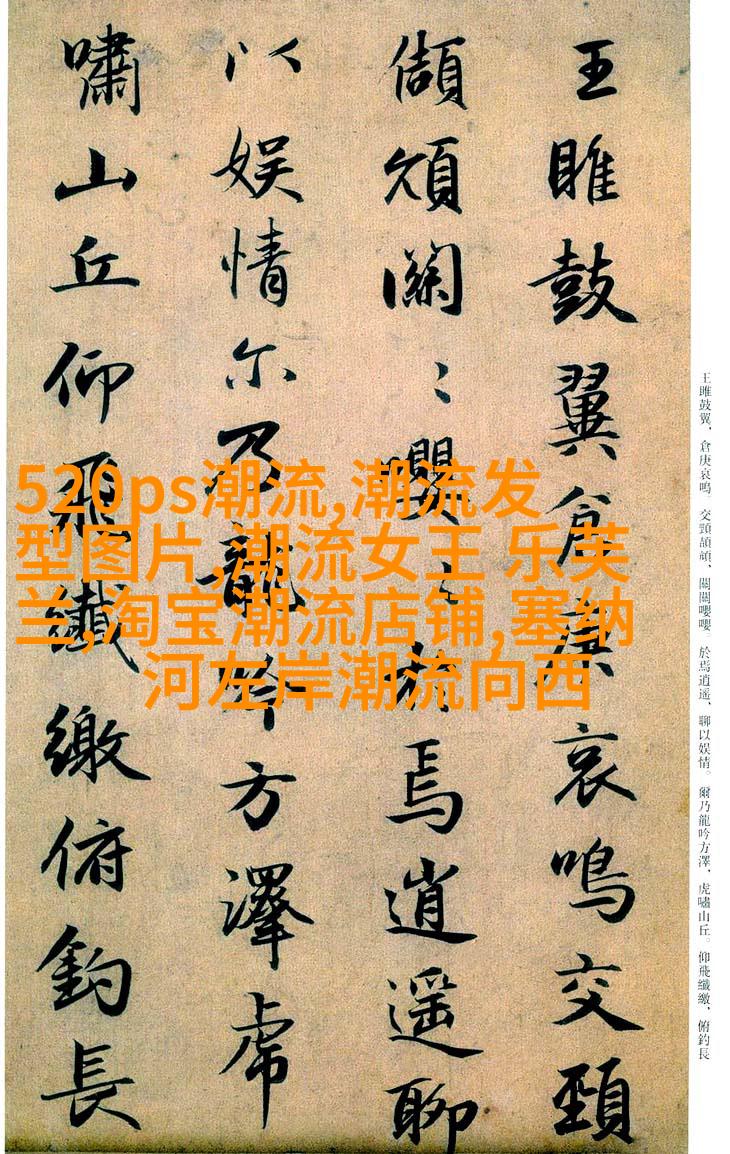 王雎鼓翼倉庚哀鳴交頸
頡頏關〻嚶〻於焉逍遥聊
以娱情尔乃龍吟方澤虎
嘯山丘仰飛纖繳俯釣長
王雎鼓翼，倉庚哀鳴。交頸頡頏，關關嚶嚶。於焉逍遥，聊以娱情。爾乃龍吟方澤，虎嘯山丘。仰飛纖繳，俯釣長
520ps潮流,潮流发
型图片,潮流女王 乐芙
兰,淘宝潮流店铺,塞纳
河左岸潮流向西